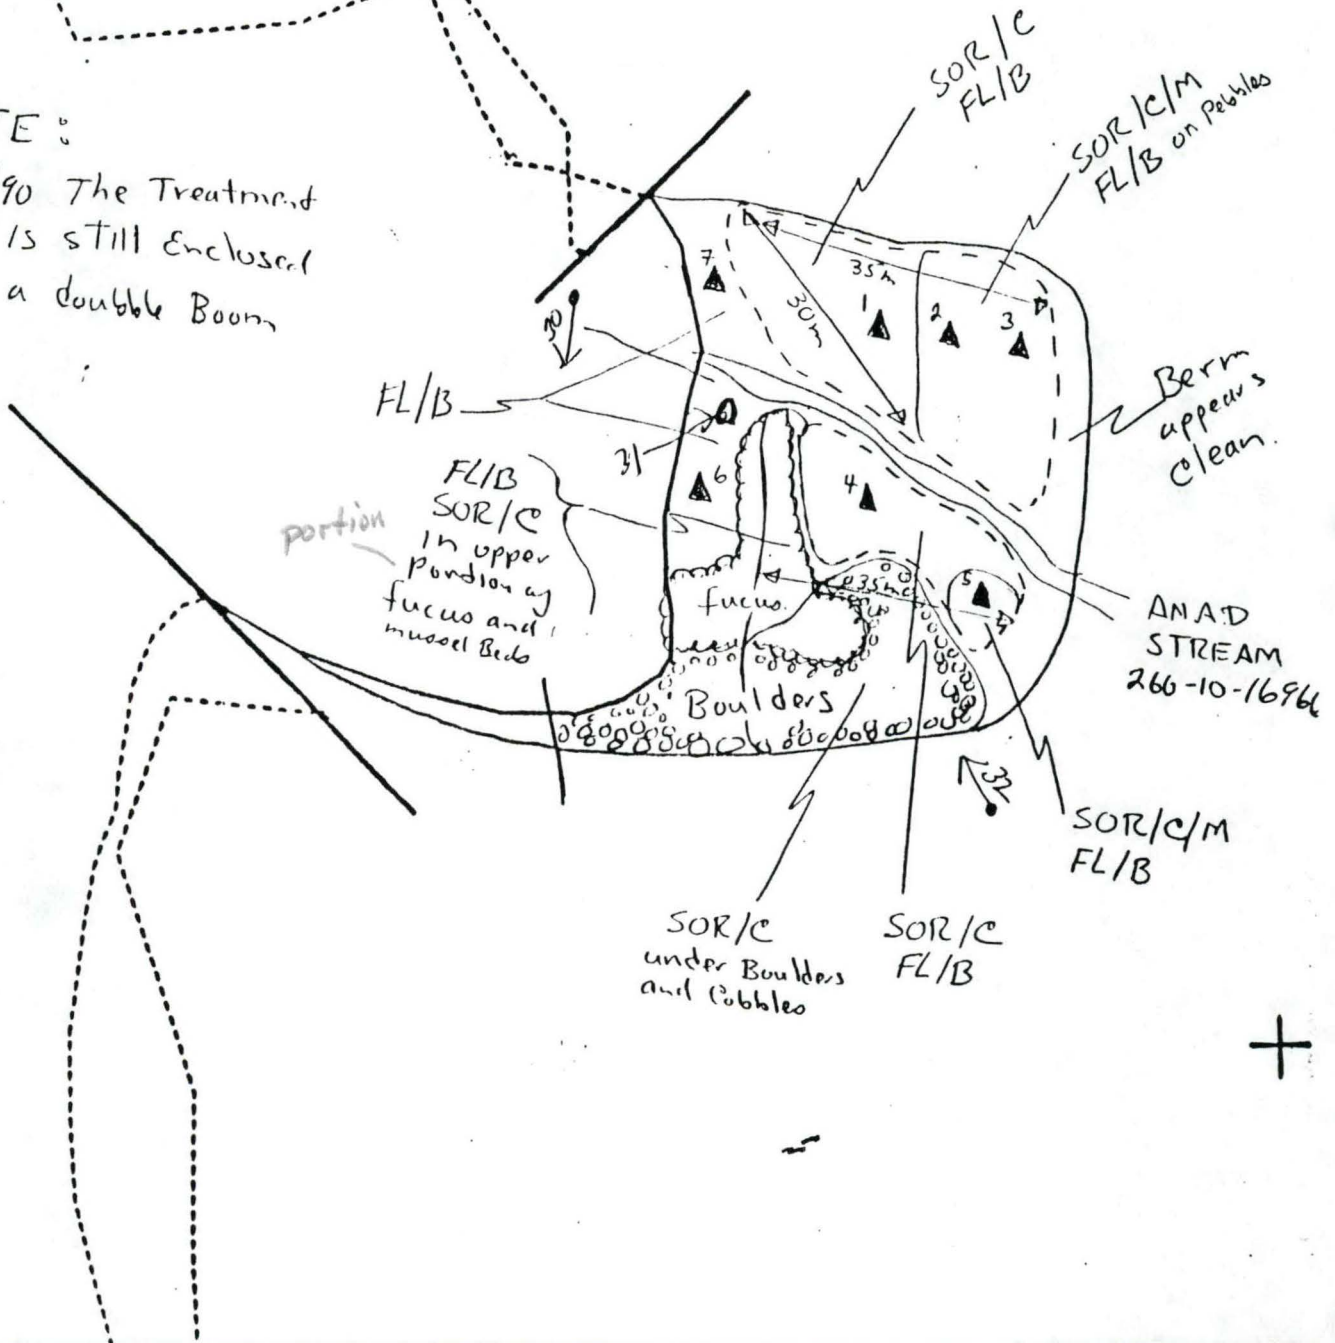 TE:
90 The Treatment
is still Enclosed
a doubble Boom
SOR/C
FL/B
SOR/C/M
FL/B on Pebbles
7
35m
30m
1
2
3
30
Berm
appears
Clean.
FL/B
31
6
4
5
FL/B
SOR/C
in upper
Pordion of
fucus and
mussel Beds
portion
fucus
35m
Boulders
ANAD
STREAM
266-10-1696
32
SOR/C/M
FL/B
SOR/C
under Boulders
and Cobbles
SOR/C
FL/B